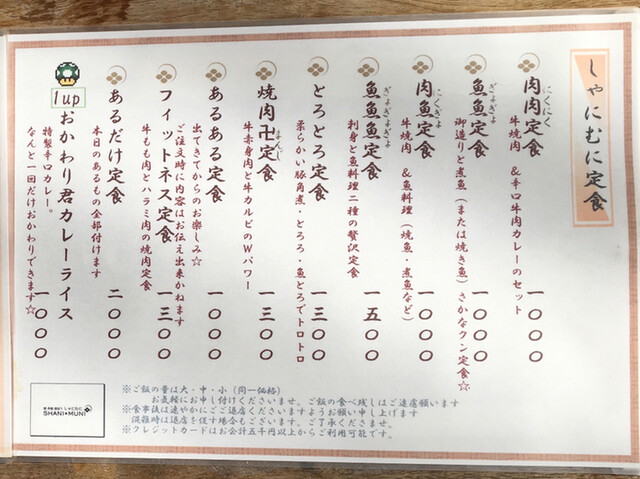 しゃにむに定食
にくにく
肉肉定食
牛焼肉 &辛口牛肉カレーのセット
一〇〇〇
ぎょぎょ
魚魚定食
御造りと煮魚(または焼き魚)さかなクン定食☆
一〇〇〇
にくぎょ
肉魚定食
牛焼肉 &魚料理(焼魚・煮魚など)
一〇〇〇
ぎょぎょぎょ
魚魚魚定食
刺身と魚料理二種の贅沢定食
一五〇〇
とろとろ定食
柔らかい豚角煮・とろろ・魚とろでトロトロ
一三〇〇
まんじ
焼肉卍定食
牛赤身肉と牛カルビのWパワー
一三〇〇
あるある定食
出てきてからのお楽しみ☆
ご注文時に内容はお伝え出来かねます
一〇〇〇
フィットネス定食
牛もも肉とハラミ肉の焼肉定食
一三〇〇
あるだけ定食
本日のあるもの全部付けます
二〇〇〇
1up おかわり君カレーライス
特製辛口カレー。
なんと一回だけおかわりできます☆
一〇〇〇
SHANI★MUNI
※ご飯の量は大・中・小(同一価格)
お気軽にお申し付けくださいませ。ご飯の食べ残しはご遠慮願います
※食事後は速やかにご退店くださいますようお願い申し上げます
混雑時は退店を促す場合もございます。ご了承くださませ。
※クレジットカードはお会計五千円以上からご利用可能です。